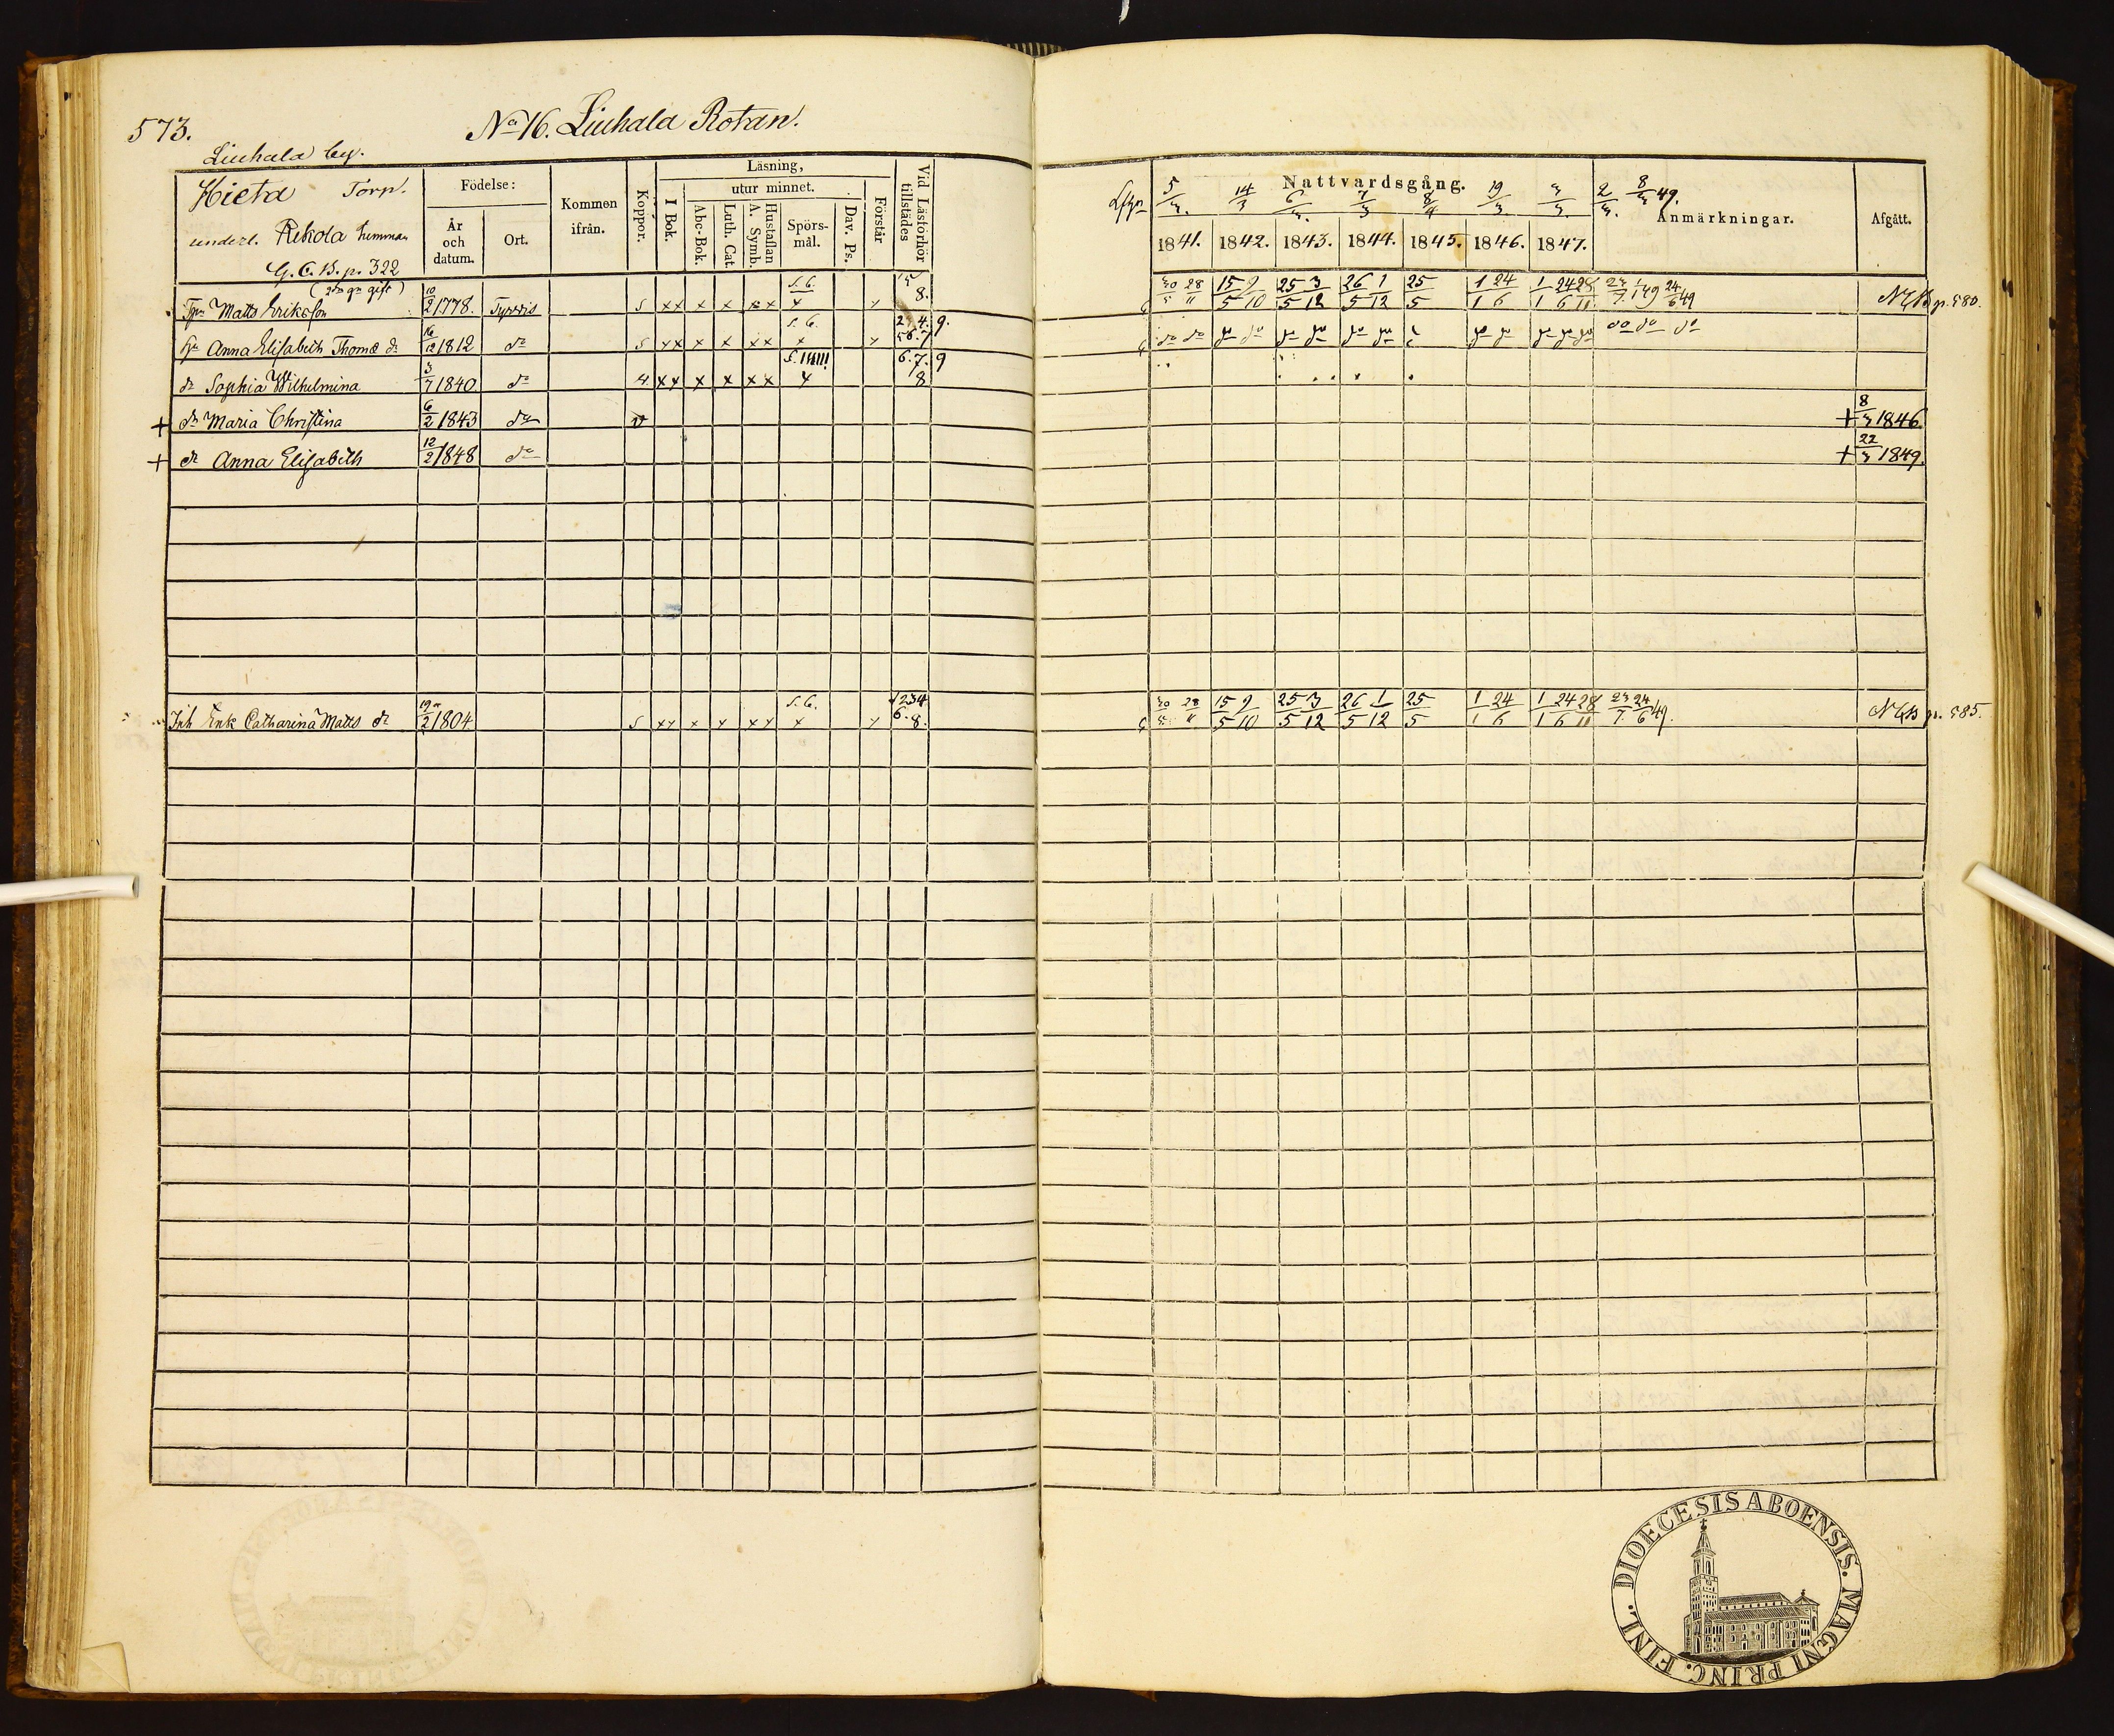 573.
No 16. Liuhala Rotan.
Liuhala by.
Hieta Torp.
underl. Rekola hemman
G. C. B. p. 322
Födelse:
År och datum.
Ort.
Kommen ifrån.
Koppor.
Läsning,
I Bok.
utur minnet.
Abc-Bok.
Luth. Cat.
Hustaflan A. Symb.
Spörsmål.
Dav. Ps.
Förstår
Vid Läsförhör tillstädes
Nattvardsgång.
5/3. 14/3 6/3. 7/3 8/4 19/3. 3/3 2/3. 8/3 49.
Anmärkningar.
Afgått.
1841. 1842. 1843. 1844. 1845. 1846. 1847.
(2dra gn gift)
Tpr Matts Eriksson 10/2 1778. Tyrvis s xx x x xx S.G. x x 8. 30/5 28/11 15/5 9/10 25/5 3/12 26/5 1/12 25/5 1/1 24/6 1/1 24/6 28/11 23/7 1/1 49 24/6 49 p. 580.
Anna Elisabeth Thomæ dr 16/12 1812 do s xx x x xx S.G. x x 2 4. 9. 56. 7 do do do do do do do do do do do do do do do do
dr Sophia Wilhelmina 3/7 1840 do 4 xx x x xx x 6. 7. 9 8
+ dr Maria Christina 6/2 1843 do v + 8/3 1846.
+ dr Anna Elisabeth 12/2 1848 do + 22/3 1849.
Inh Enk Catharina Matts dr 19/2 1804 s xx x x xx S.G. x x 1234 6. 8. 30/5 28/11 15/5 9/10 25/5 3/12 26/5 1/12 25/5 1/1 24/6 1/1 24/6 28/11 23/7 24/6 49. p. 585.
DIOECESIS ABOENSIS. MAGNI PRINC. FINL.